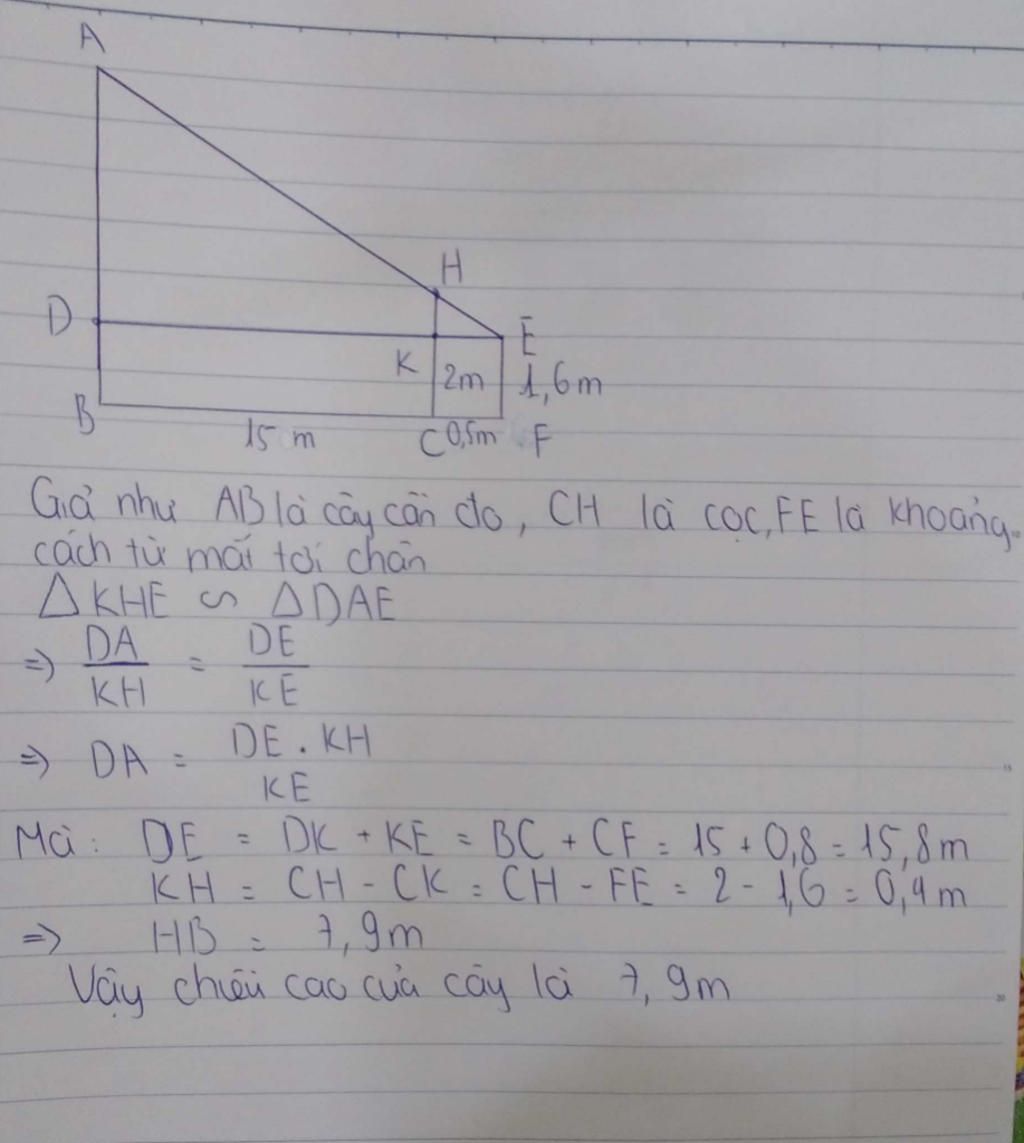 A
H
D
E
K
2m
1,6m
B
15 m
C
0,5m
F
Giả như AB là cây cần đo, CH là cọc, FE là khoảng
cách từ mắt tới chân
△KHE ∽ △DAE
=> DA/KH = DE/KE
=> DA = DE . KH/KE
Mà: DE = DK + KE = BC + CF = 15 + 0,8 = 15,8m
KH = CH - CK = CH - FE = 2 - 1,6 = 0,4m
=> HB = 7,9m
Vậy chiều cao của cây là 7,9m